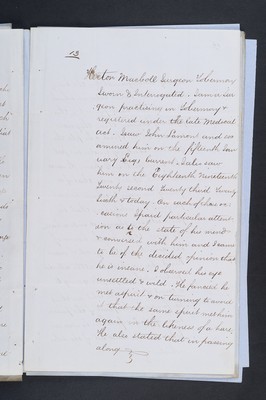 13
Hector Macboll Surgeon Tobermory
Sworn & Interrogated. I am a Sur
geon practising in Tobermory &
registered under the late Medical
act. I saw John Lamont and ex
amined him on the fifteenth Jan
uary Current. I also saw
him on the Eighteenth Nineteenth
Twenty second Twenty third
& today. On each of these oc
casions I paid particular attent
ion as to the state of his mind
& conversed with him and I came
to be of the decided opinion that
he is insane. I observed his eye
unsettled & wild. He fancied he
met a spirit & on turning round
that the same spirit met him
again in the likeness of a hare.
He also stated that in passing
along